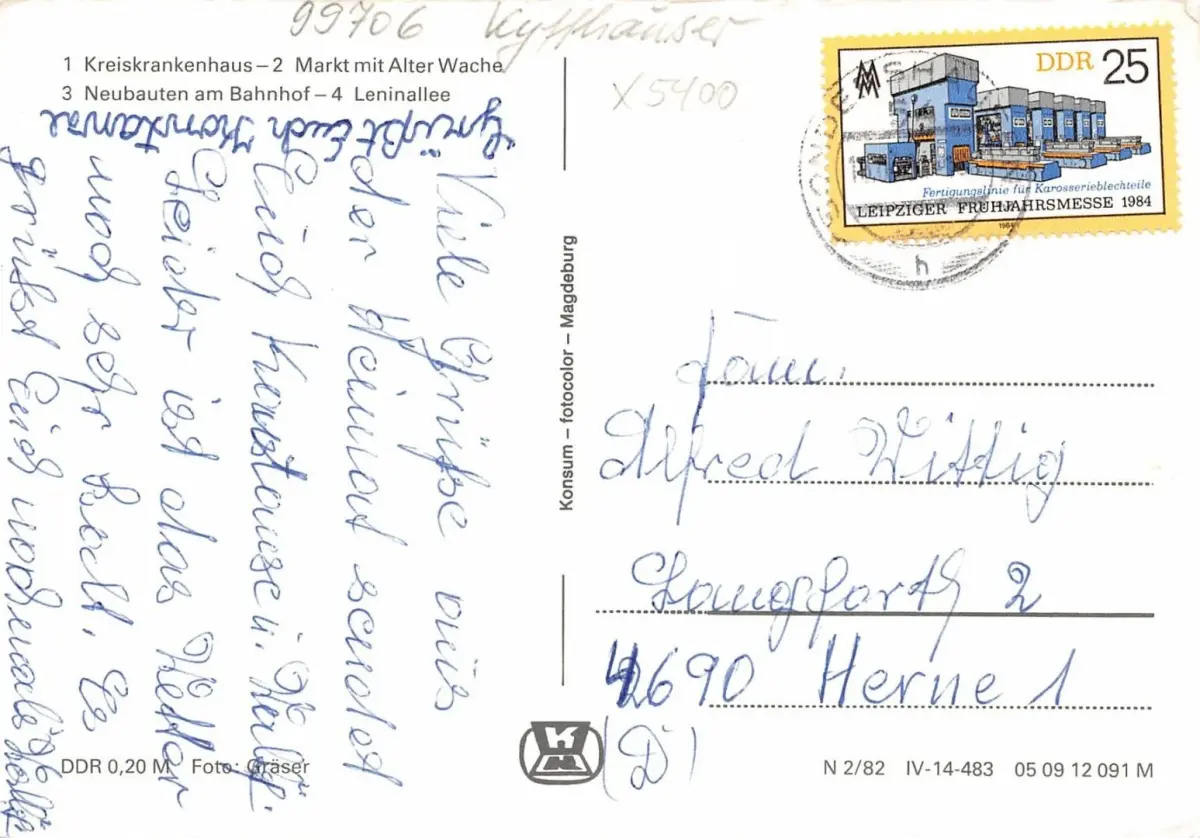 99706 Kyffhäuser
X5400
1 Kreiskrankenhaus – 2 Markt mit Alter Wache
3 Neubauten am Bahnhof – 4 Leninallee
DDR 25
MM
Fertigungslinie für Karosserieblechteile
LEIPZIGER FRÜHJAHRSMESSE 1984
1984
h
Viele Grüße aus
der Heimat sendet
Euch
Leider ist das Wetter
noch sehr kalt. Es
grüßt Euch nochmals
Grüßt Euch Konstanze
Konsum – fotocolor – Magdeburg
Fam.
Alfred Wittig
Langforth 2
4690 Herne 1
(D)
DDR 0,20 M Foto: Gräser
N 2/82 IV-14-483 05 09 12 091 M